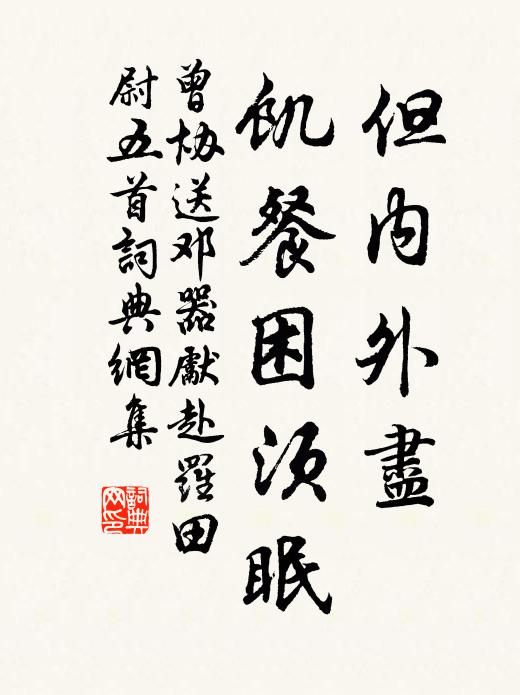 但内外盡
飢餐困須眠
曾协送邓器獻赴羅田
尉五首詞典網集
詞典
网印